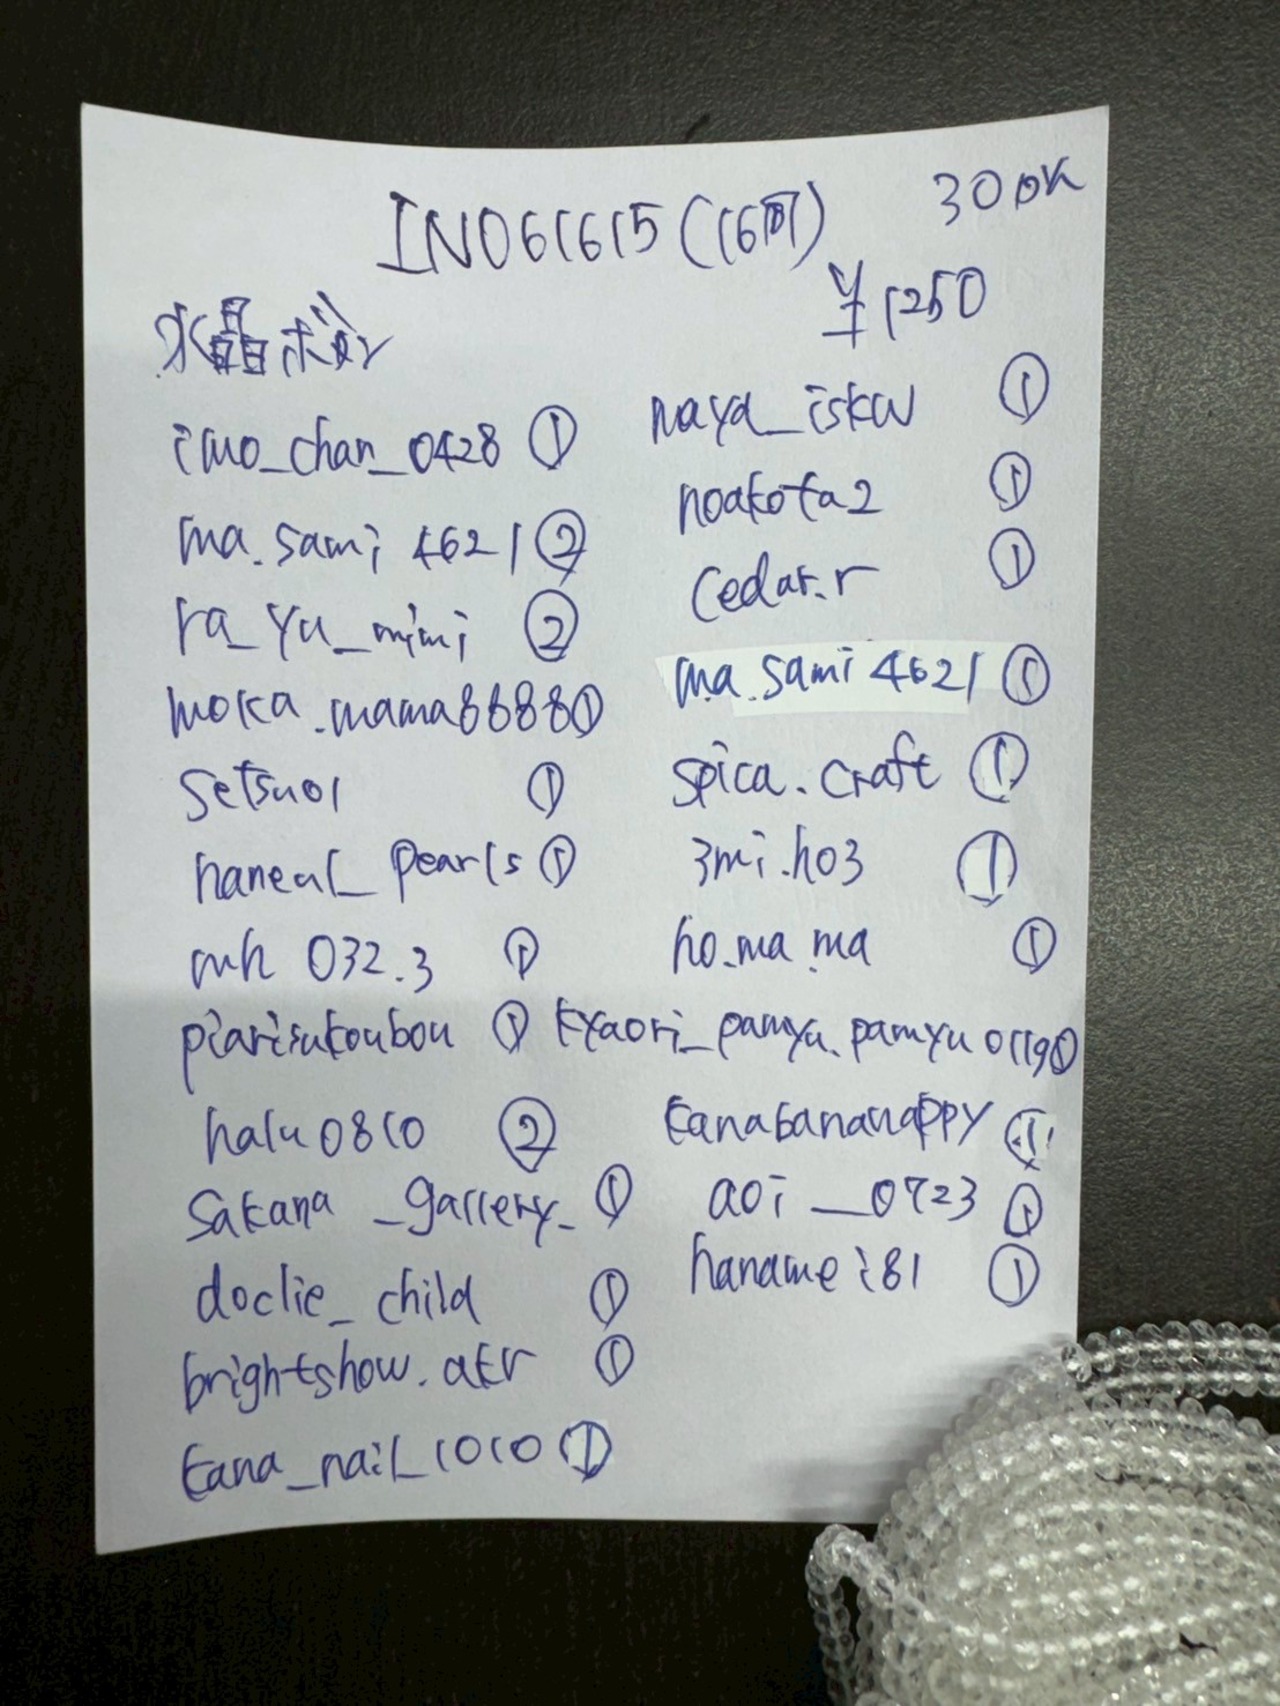 IN061615(16冂)
30 OK
¥1250
水晶
imo_chan_0428 ①
ma.sami 4621 ②
ra_yu_mimi ②
moka.mama8888 ①
setsuo1 ①
haneul_pearls ①
mh 032.3 ①
piarisukoubou ①
halu0810 ②
sakana_gallery_ ①
doclie_child ①
brightshow.akr ①
kana_nail_1010 ①
naya_iskw ①
noakota2 ①
cedar.r ①
ma.sami 4621 ①
spica.craft ①
3mi.h03 ①
ho.ma.ma ①
kyaori_pamyu.pamyu0119 ①
kanabananappy ①
aoi__0723 ①
hanamei81 ①